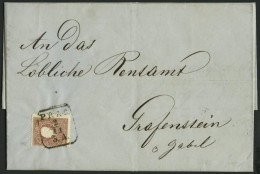 An das
Löbliche Rentamt
Grafenstein
Gabel